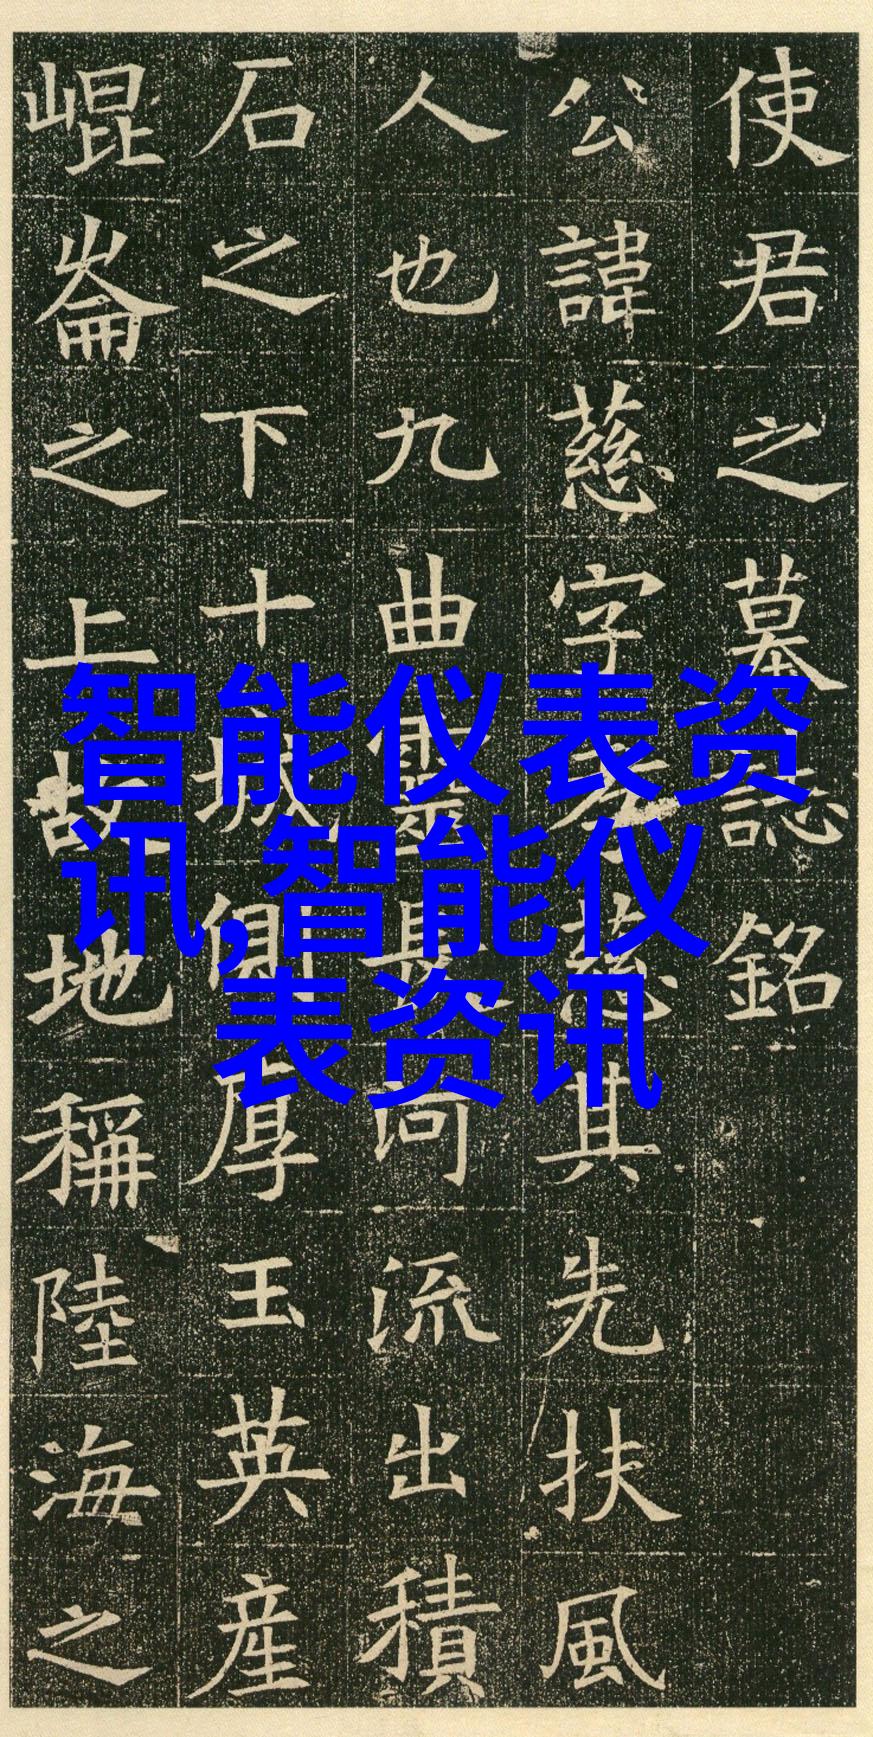 使君之墓誌銘
公諱慈字孝慈其先扶風
人也九曲靈長河流出積
石之下十城側厚玉英産
崐崙之上故地稱陸海之
智能仪表资
讯,智能仪
表资讯